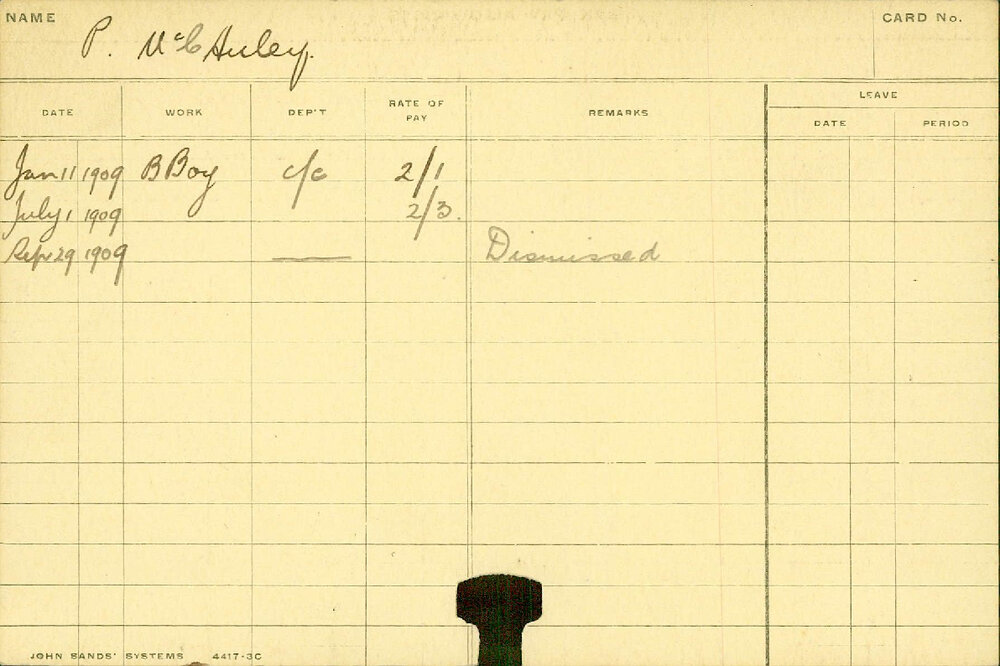 NAME CARD No.
P. McCAuley.
LEAVE
DATE WORK DEP'T RATE OF PAY REMARKS DATE PERIOD
Jan 11 1909 B Boy c/c 2/1
July 1 1909 2/3.
Sep 29 1909 — Dismissed
JOHN SANDS' SYSTEMS 4417-3C